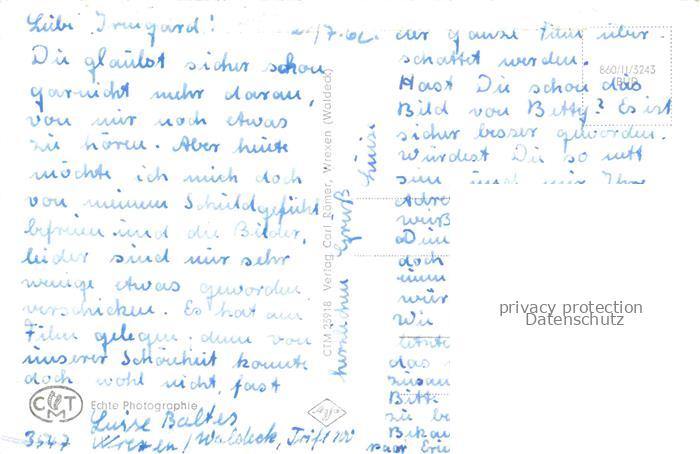 Liebe Irmgard!
Du glaubst sicher schon
garnicht mehr daran,
von mir noch etwas
zu hören. Aber heute
möchte ich mich doch
von meinem Schuldgefühl
befreien und die Bilder,
leider sind nur sehr
wenige etwas geworden
verschicken. Es hat am
Film gelegen, denn von
unserer Schönheit konnte
doch wohl nicht, fast
CTM
Echte Photographie
Luise Baltes
3547 Wrexen/Waldeck, Trift
CTM 23918 Verlag Carl Römer, Wrexen (Waldeck)
herzlichen Gruß Luise
der ganze Film über-
schattet werden.
860/II/3243
BÜD
Hast Du schon das
Bild von Betty? Es ist
sicher besser geworden.
Würdest Du so nett
sein und mir Ihre
Adre
weiß
Dein
doch
wür
Wir
letzte
das
zusam
Bitte
zu be
Bekan
paar Erin
privacy protection
Datenschutz